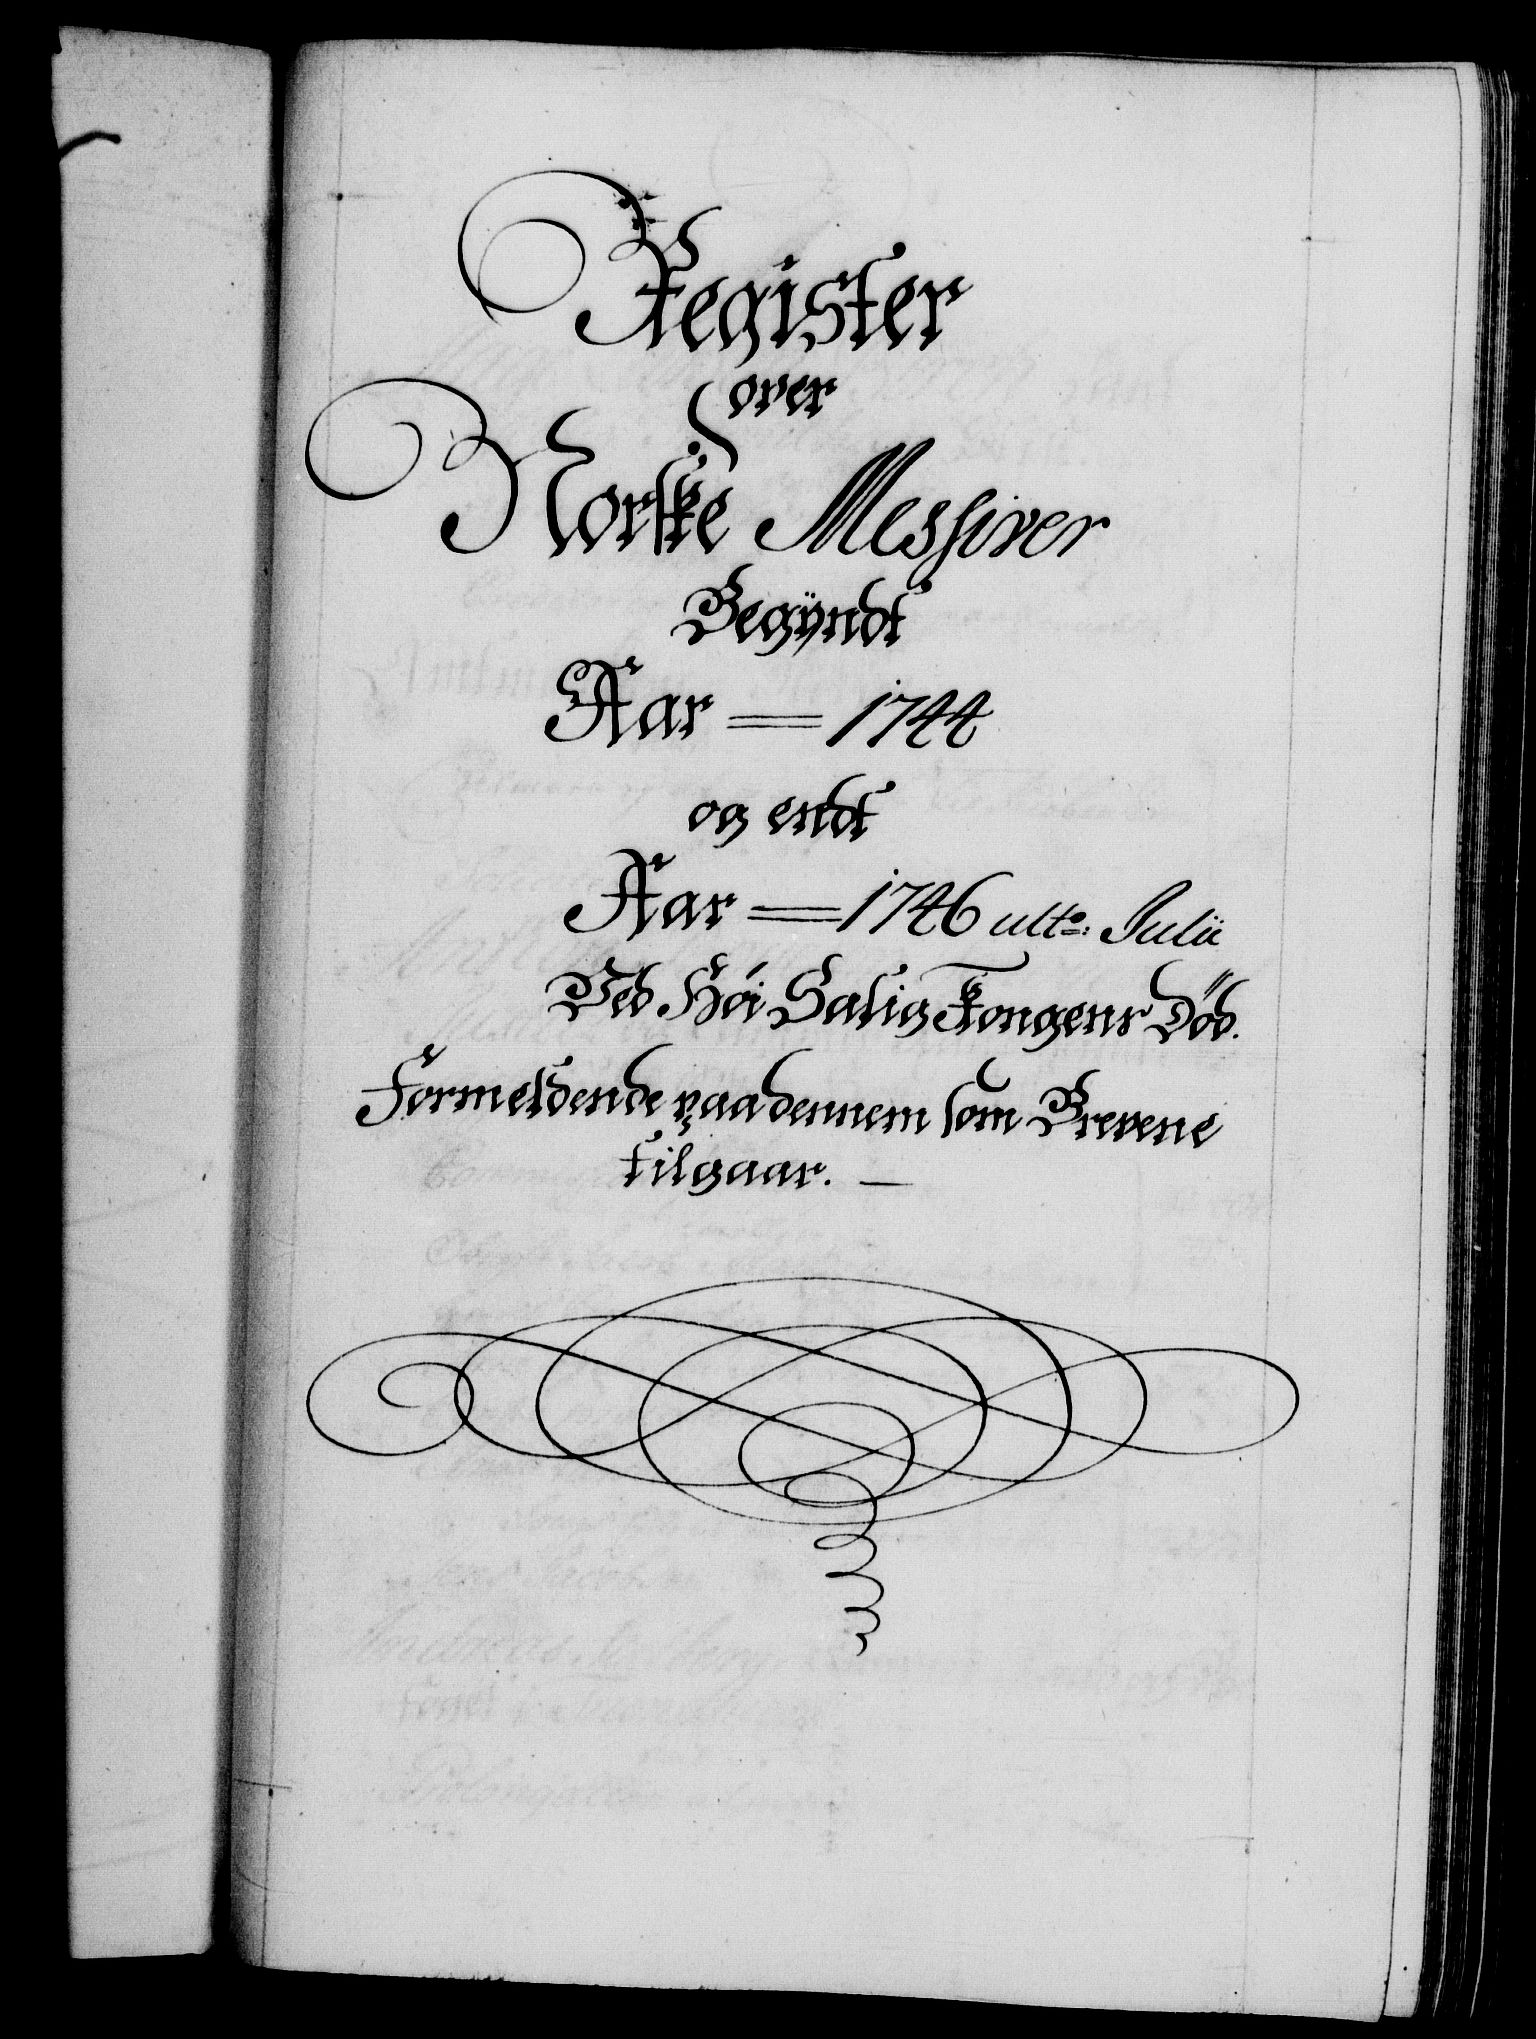 Register
over
Norske Messiver
Begÿndt
Aar = 1744
og endt
Aar = 1746 ulto: Julii
Ved Høi Salig Kongens Død.
Formeldende paa dennem som Brevene
tilgaar. —